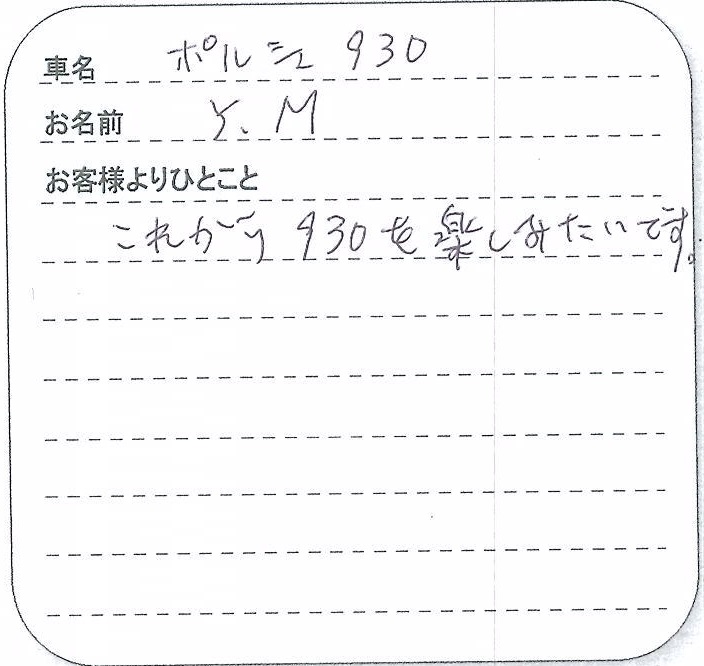 車名 ポルシェ 930
お名前 Y.M
お客様よりひとこと
これから930を楽しみたいです。